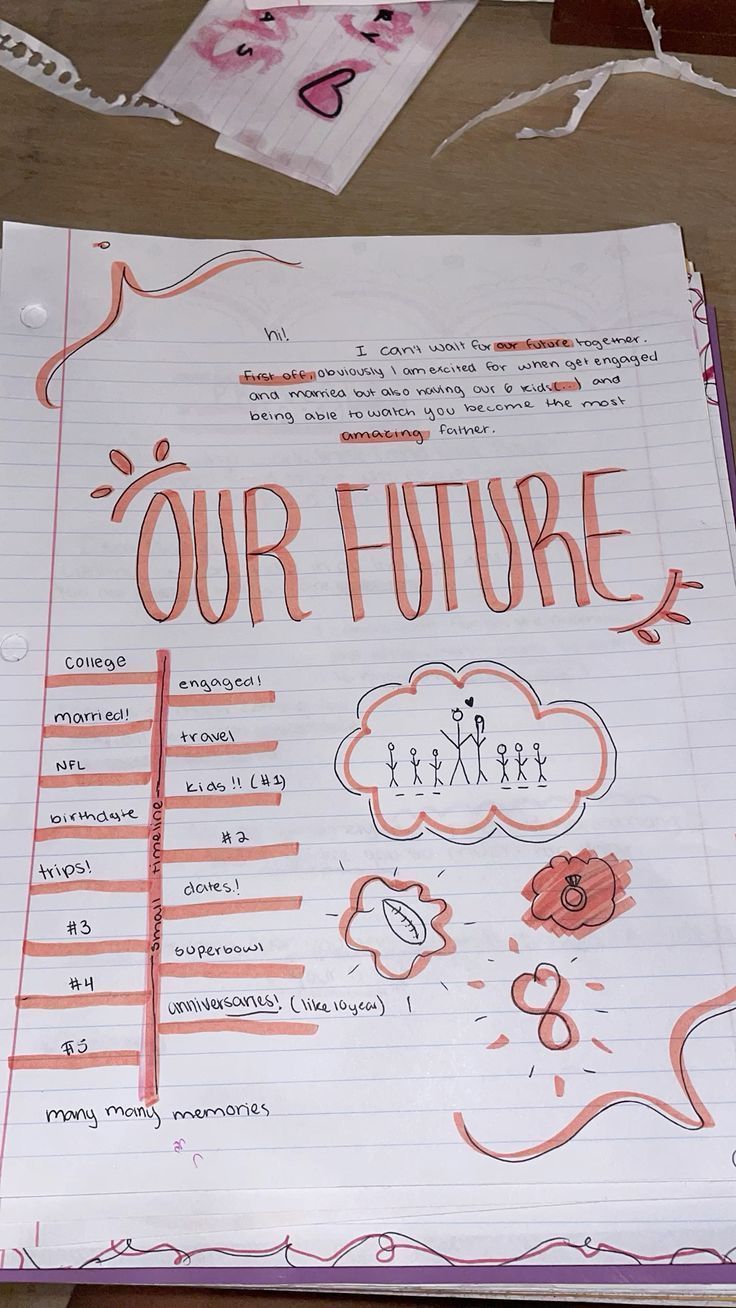 hi!
I can't wait for our future together.
First off, obviously I am excited for when get engaged
and married but also having our 6 kids(...) and
being able to watch you become the most
amazing father.
OUR FUTURE
College
engaged!
married!
travel
NFL
kids!! (#1)
birthdate
#2
trips!
dates!
#3
superbowl
#4
anniversaries! (like 10 year)
#5
small timeline
many many memories